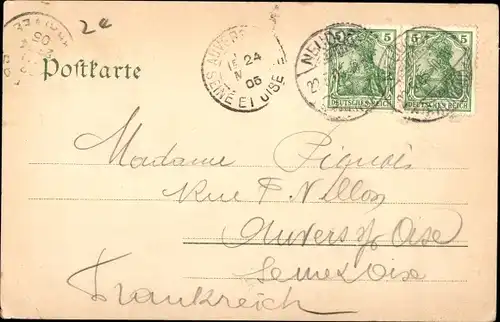 2e
Postkarte
AUVERS
24
05
SEINE ET OISE
NEUDORF
22
5 5
DEUTSCHES REICH
5 5
DEUTSCHES REICH
Madame
Rue F. Villon
Auvers s/ Oise
Seine & Oise
Frankreich